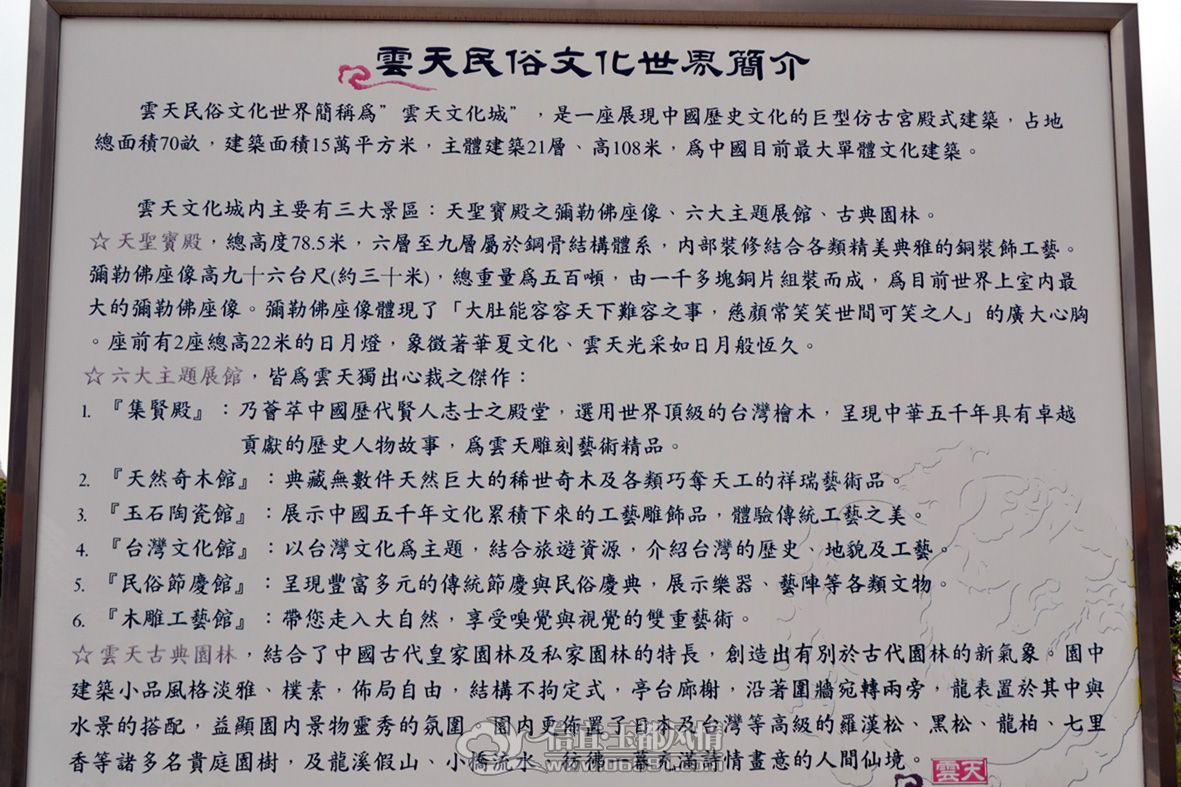 雲天民俗文化世界簡介
雲天民俗文化世界簡稱爲”雲天文化城”，是一座展現中國歷史文化的巨型仿古宮殿式建築，占地
總面積70畝，建築面積15萬平方米，主體建築21層、高108米，爲中國目前最大單體文化建築。
雲天文化城内主要有三大景區：天聖寶殿之彌勒佛座像、六大主題展館、古典園林。
☆天聖寶殿，總高度78.5米，六層至九層屬於鋼骨結構體系，内部裝修結合各類精美典雅的銅裝飾工藝。
彌勒佛座像高九十六台尺(約三十米)，總重量爲五百噸，由一千多塊銅片組裝而成，爲目前世界上室内最
大的彌勒佛座像。彌勒佛座像體現了「大肚能容容天下難容之事，慈顔常笑笑世間可笑之人」的廣大心胸
。座前有2座總高22米的日月燈，象徵著華夏文化、雲天光采如日月般恆久。
☆六大主題展館，皆爲雲天獨出心裁之傑作：
1. 『集賢殿』：乃薈萃中國歷代賢人志士之殿堂，選用世界頂級的台灣檜木，呈現中華五千年具有卓越
貢獻的歷史人物故事，爲雲天雕刻藝術精品。
2. 『天然奇木館』：典藏無數件天然巨大的稀世奇木及各類巧奪天工的祥瑞藝術品。
3. 『玉石陶瓷館』：展示中國五千年文化累積下來的工藝雕飾品，體驗傳統工藝之美。
4. 『台灣文化館』：以台灣文化爲主題，結合旅遊資源，介紹台灣的歷史、地貌及工藝。
5. 『民俗節慶館』：呈現豐富多元的傳統節慶與民俗慶典，展示樂器、藝陣等各類文物。
6. 『木雕工藝館』：帶您走入大自然，享受嗅覺與視覺的雙重藝術。
☆雲天古典園林，結合了中國古代皇家園林及私家園林的特長，創造出有別於古代園林的新氣象。園中
建築小品風格淡雅、樸素，佈局自由，結構不拘定式，亭台廊榭，沿著圍牆宛轉兩旁，龍表置於其中與
水景的搭配，益顯園内景物靈秀的氛圍 園内更佈置了日本及台灣等高級的羅漢松、黑松、龍柏、七里
香等諸多名貴庭園樹，及龍溪假山、小橋流水 彷彿一幕充滿詩情畫意的人間仙境。
雲天
信宜玉都风情